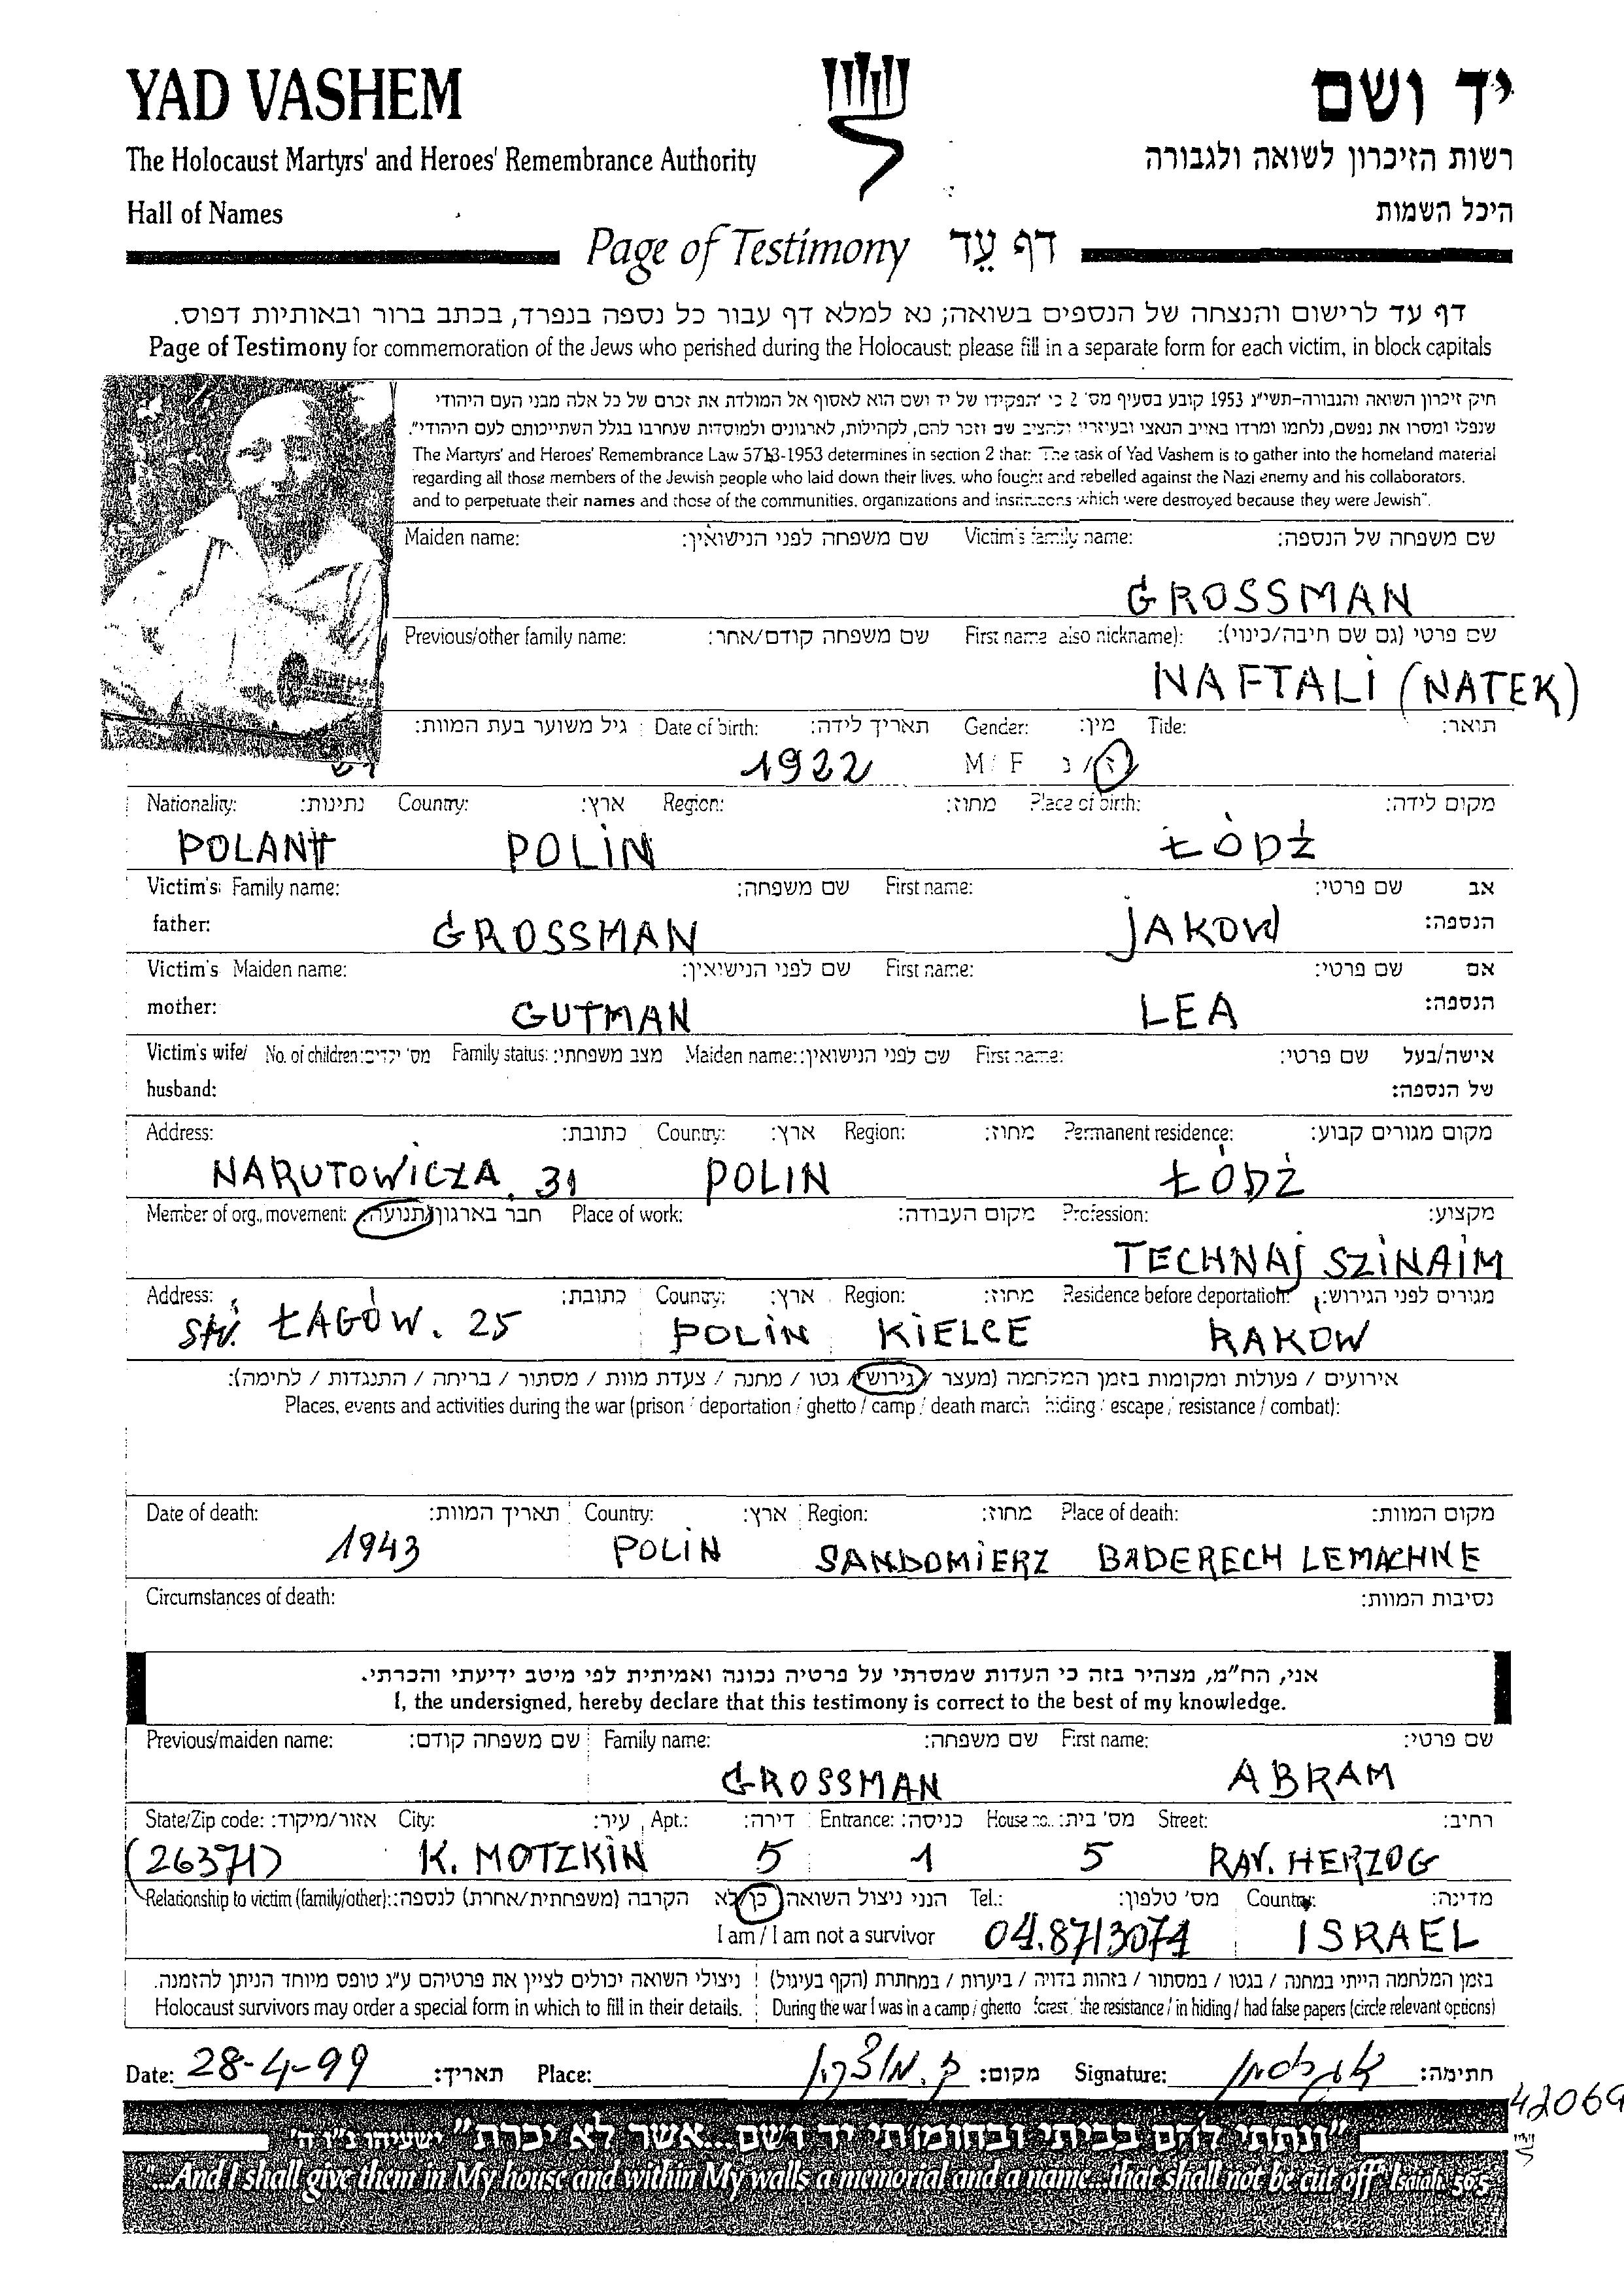 YAD VASHEM
יד ושם
The Holocaust Martyrs' and Heroes' Remembrance Authority
רשות הזיכרון לשואה ולגבורה
Hall of Names
היכל השמות
Page of Testimony דף עֵד
דף עד לרישום והנצחה של הנספים בשואה; נא למלא דף עבור כל נספה בנפרד, בכתב ברור ובאותיות דפוס.
Page of Testimony for commemoration of the Jews who perished during the Holocaust: please fill in a separate form for each victim, in block capitals
חוק זיכרון השואה והגבורה-תשי״ג 1953 קובע בסעיף מס׳ 2 כי תפקידו של יד ושם הוא לאסוף אל המולדת את זכרם של כל אלה מבני העם היהודי
שנפלו ומסרו את נפשם, נלחמו ומרדו באויב הנאצי ובעוזריו ולהציב שם וזכר להם, לקהילות, לארגונים ולמוסדות שנחרבו בגלל השתייכותם לעם היהודי״.
The Martyrs' and Heroes' Remembrance Law 5713-1953 determines in section 2 that: "The task of Yad Vashem is to gather into the homeland material
regarding all those members of the Jewish people who laid down their lives, who fought and rebelled against the Nazi enemy and his collaborators,
and to perpetuate their names and those of the communities, organizations and institutions which were destroyed because they were Jewish".
Maiden name: שם משפחה לפני הנישואין: Victim's family name: שם משפחה של הנספה:
GROSSMAN
Previous/other family name: שם משפחה קודם/אחר: First name also nickname): שם פרטי (גם שם חיבה/כינוי):
NAFTALI (NATEK)
גיל משוער בעת המוות: Date of birth: תאריך לידה: Gender: מין: Title: תואר:
1922 M / F ז / נ
Nationality: נתינות: Country: ארץ: Region: מחוז: Place of birth: מקום לידה:
POLANIT POLIN ŁÓDŹ
Victim's Family name: שם משפחה: First name: שם פרטי: אב
father: הנספה:
GROSSMAN JAKOW
Victim's Maiden name: שם לפני הנישואין: First name: שם פרטי: אם
mother: הנספה:
GUTMAN LEA
Victim's wife/ No. of children: מס׳ ילדים: Family status: מצב משפחתי: Maiden name: שם לפני הנישואין: First name: שם פרטי: אישה/בעל
husband: של הנספה:
Address: כתובת: Country: ארץ: Region: מחוז: Permanent residence: מקום מגורים קבוע:
NARUTOWICZA. 31 POLIN ŁÓDŹ
Member of org., movement: חבר בארגון/תנועה: Place of work: מקום העבודה: Profession: מקצוע:
TECHNAJ SZINAIM
Address: כתובת: Country: ארץ: Region: מחוז: Residence before deportation: מגורים לפני הגירוש:
ŁAGÓW. 25 POLIN KIELCE RAKOW
אירועים / פעולות ומקומות בזמן המלחמה (מעצר / גירוש / גטו / מחנה / צעדת מוות / מסתור / בריחה / התנגדות / לחימה):
Places, events and activities during the war (prison / deportation / ghetto / camp / death march hiding / escape / resistance / combat):
Date of death: תאריך המוות: Country: ארץ: Region: מחוז: Place of death: מקום המוות:
1943 POLIN SANDOMIERZ BADERECH LEMACHNE
Circumstances of death: נסיבות המוות:
אני, הח״מ, מצהיר בזה כי העדות שמסרתי על פרטיה נכונה ואמיתית לפי מיטב ידיעתי והכרתי.
I, the undersigned, hereby declare that this testimony is correct to the best of my knowledge.
Previous/maiden name: שם משפחה קודם: Family name: שם משפחה: First name: שם פרטי:
GROSSMAN ABRAM
State/Zip code: אזור/מיקוד: City: עיר: Apt.: דירה: Entrance: כניסה: House no.: מס׳ בית: Street: רחוב:
(26371) K. MOTZKIN 5 1 5 RAV. HERZOG
Relationship to victim (family/other): הקרבה (משפחתית/אחרת) לנספה: הנני ניצול השואה כן/לא Tel.: מס׳ טלפון: Country: מדינה:
I am / I am not a survivor 04.8713071 ISRAEL
ניצולי השואה יכולים לציין את פרטיהם ע״ג טופס מיוחד הניתן להזמנה. בזמן המלחמה הייתי במחנה / בגטו / במסתור / בזהות בדויה / ביערות / במחתרת (הקף בעיגול)
Holocaust survivors may order a special form in which to fill in their details. During the war I was in a camp / ghetto forest / the resistance / in hiding / had false papers (circle relevant options)
Date: 28-4-99 תאריך: Place: ק. מוצקין מקום: Signature: גרוסמן חתימה:
42069
"ונתתי להם בביתי ובחומותי יד ושם...אשר לא יכרת" ישעיהו נ״ו ה׳
"...And I shall give them in My house and within My walls a memorial and a name...that shall not be cut off" Isaiah 56:5